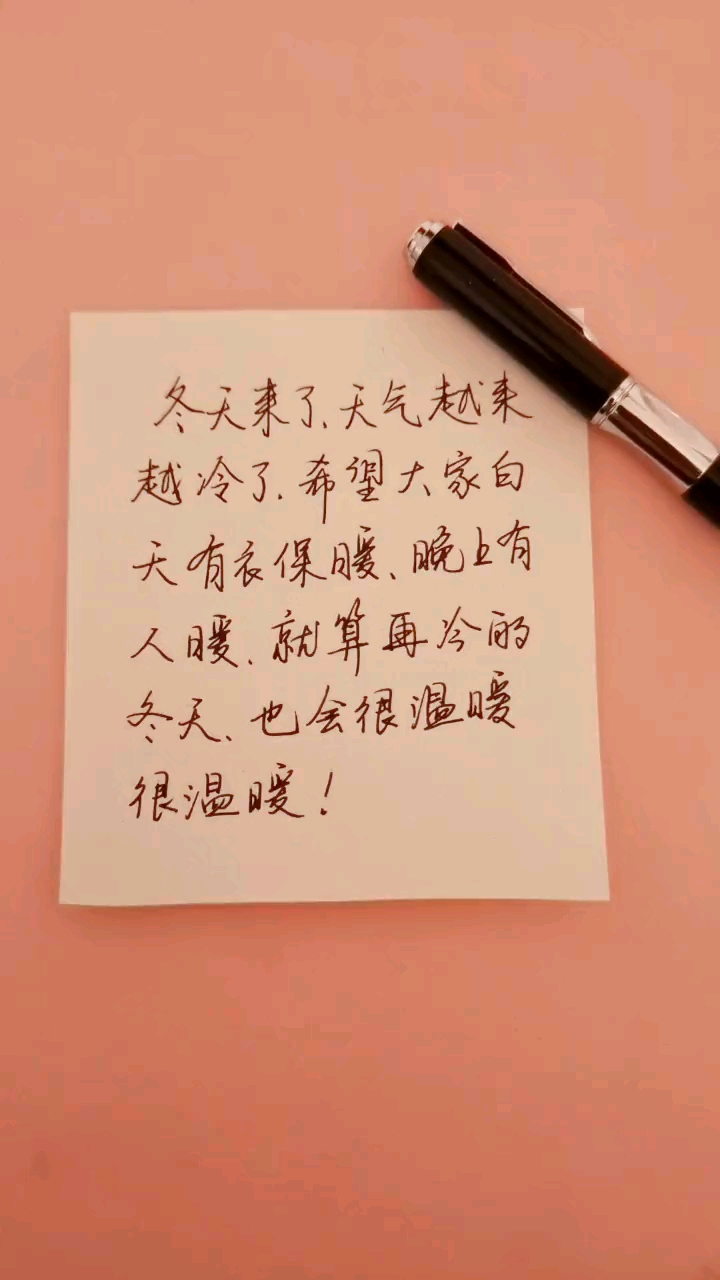 冬天来了、天气越来
越冷了、希望大家白
天有衣保暖、晚上有
人暖、就算再冷的
冬天、也会很温暖
很温暖！